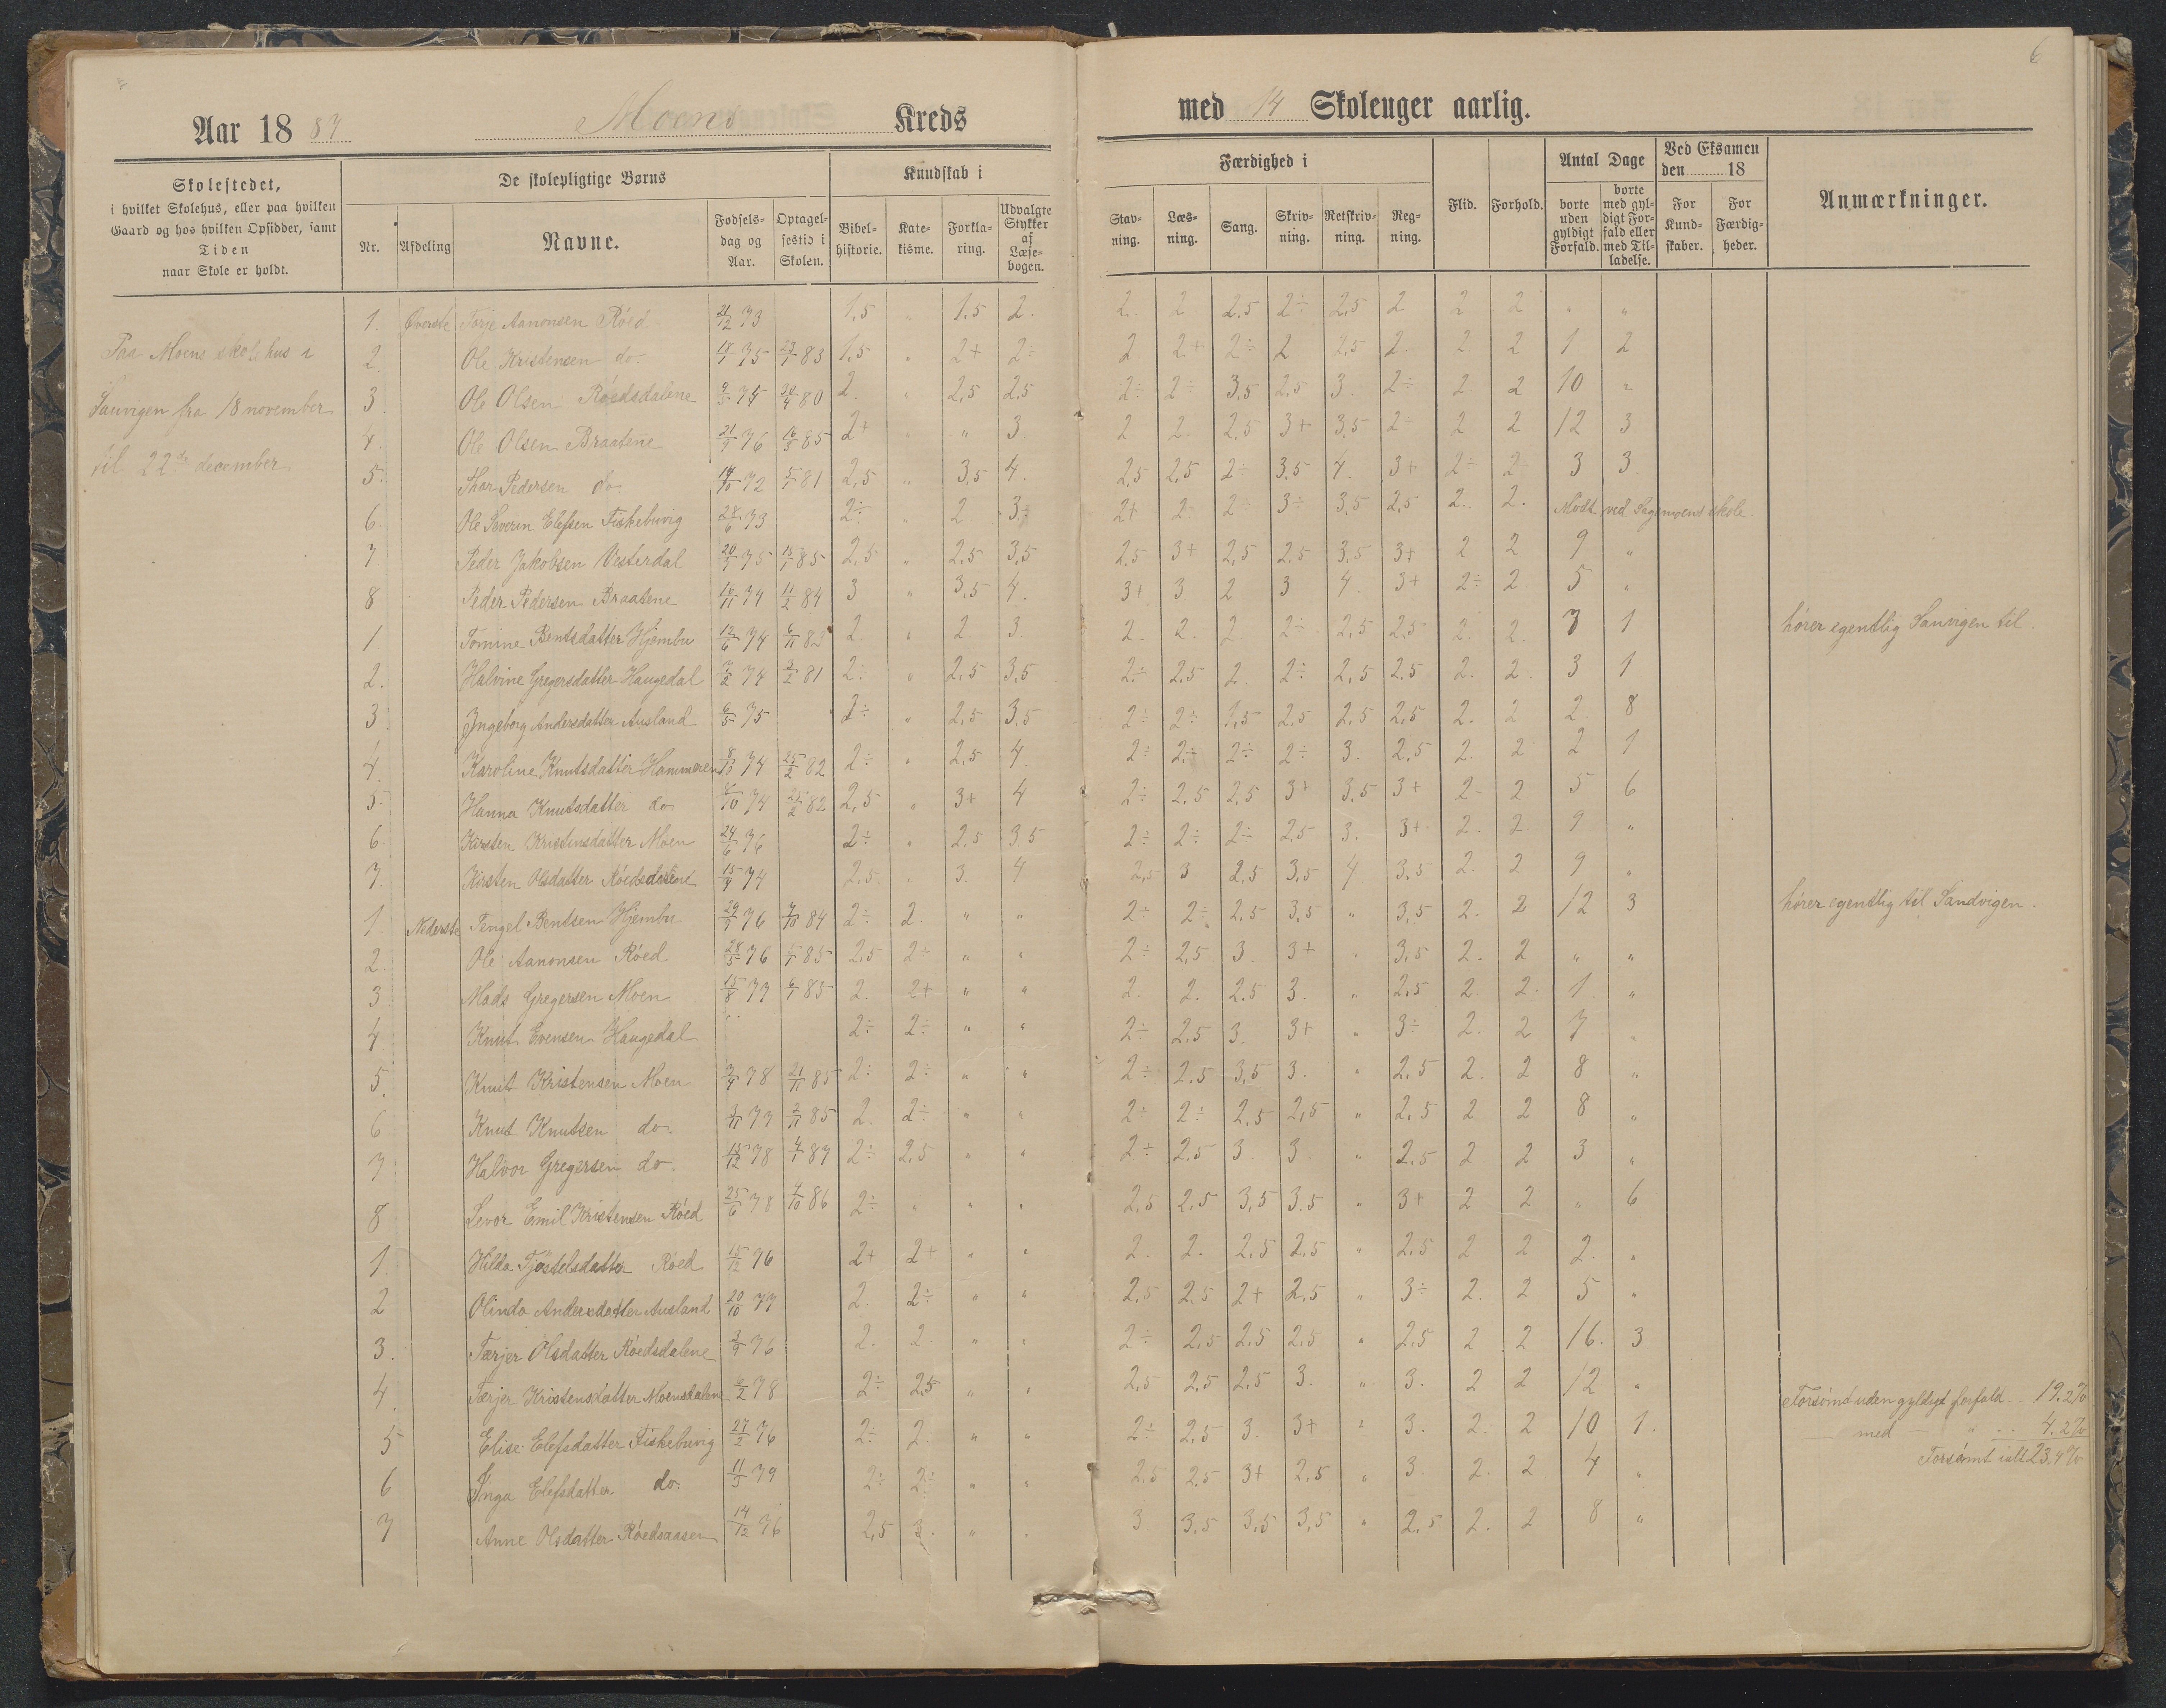 6
Aar 1887 Moens Kreds med 14 Skoleuger aarlig.
Skolestedet, i hvilket Skolehus, eller paa hvilken Gaard og hos hvilken Opsidder, samt Tiden naar Skole er holdt.
De skolepligtige Børns
Nr. Afdeling Navne. Fødsels-dag og Aar. Optagel-sestid i Skolen.
Kundskab i
Bibel-historie. Kate-kisme. Forkla-ring. Udvalgte Stykker af Læse-bogen.
Færdighed i
Stav-ning. Læs-ning. Sang. Skriv-ning. Retskriv-ning. Reg-ning.
Flid. Forhold.
Antal Dage
borte uden gyldigt Forfald. borte med gyl-digt For-fald eller med Til-ladelse.
Ved Eksamen den 18
For Kund-skaber. For Færdig-heder.
Anmærkninger.
Paa Moens skolehus i
Sauvigen fra 18 november
til 22de december
1. Øverste Torje Aanonsen Röed 21/12 73 1,5 " 1,5 2. 2. 2 2,5 2÷ 2,5 2 2 2 " "
2. Ole Kristensen do. 18/1 75 23/1 83 1,5 " 2+ 2÷ 2 2+ 2÷ 2 2,5 2. 2. 2 1 2
3. Ole Olsen Röedsdalene 9/3 75 30/4 80 2. " 2,5 2,5 2÷ 2÷ 3,5 2,5 3. 2÷ 2. 2 10 "
4. Ole Olsen Braatene 21/9 76 16/3 85 2+ " 3. 2 2. 2,5 3+ 3,5 2÷ 2 2 12 3
5. Thor Pedersen do. 19/10 72 5/1 81 2,5 " 3,5 4. 2,5 2,5 2÷ 3,5 4. 3+ 2÷ 2÷ 3 3.
6. Ole Severin Elefsen Fiskebuvig 28/6 73 2÷ " 2 3÷ 2+ 2 2÷ 3÷ 3,5 2,5 2. 2. Mødt ved Sagemoens skole
7. Peder Jakobsen Vesterdal 20/3 75 15/1 85 2,5 " 2,5 3,5 2,5 3+ 2,5 2,5 3,5 3+ 2 2 9 "
8 Peder Pedersen Braatene 16/11 74 11/2 84 3 " 3,5 4. 3+ 3. 2. 3 4. 3+ 2÷ 2. 5 "
1. Tomine Bentsdatter Hjembu 12/6 74 6/11 82 2. " 2 3. 2. 2. 2 2÷ 2,5 2,5 2. 2. 3 1 hører egentlig Sanvigen til.
2. Halvine Gregersdatter Haugedal 7/2 74 3/2 81 2÷ " 2,5 3,5 2÷ 2,5 2. 2÷ 2,5 2,5 2. 2. 3 1
3. Ingeborg Andersdatter Ausland 6/5 75 2÷ " 2,5 3,5 2÷ 2÷ 1,5 2,5 2,5 2,5 2. 2 2. 8
4. Karoline Knutsdatter Hammeren 8/10 74 25/2 82 2÷ " 2,5 4. 2÷ 2÷ 2÷ 2÷ 3. 2,5 2. 2 2 1
5. Hanna Knutsdatter do 8/10 74 25/2 82 2,5 " 3+ 4 2÷ 2,5 2,5 3+ 3,5 3+ 2- 2 5 6
6. Kirsten Kristensdatter Moen 24/6 76 2÷ " 2,5 3,5 2÷ 2÷ 2÷ 2,5 3. 3+ 2. 2. 9 "
7. Kirsten Olsdatter Röedsdalene 15/9 74 2,5. " 3. 4 2,5 3. 2,5 3,5 4 3,5 2. 2 9 "
1. Nederste Tengel Bentsen Hjembu 29/9 76 7/10 84 2÷ 2. " " 2÷ 2÷ 2,5 3,5 " 3,5 2. 2 12 3 hører egentlig til Sandvigen.
2. Ole Aanonsen Röed 28/5 76 5/1 85 2,5 2÷ " " 2÷ 2,5 3. 3+ " 3,5 2. 2 " "
3. Mads Gregersen Moen 15/8 77 6/1 85 2. 2+ " " 2. 2. 2,5 3. " 2,5 2. 2. 1. "
4. Knut Evensen Haugedal 2÷ 2÷ " " 2÷ 2,5 3. 3+ " 3÷ 2. 2 7 "
5. Knut Kristensen Moen 3/4 78 21/11 85 2÷ 2÷ " " 2÷ 2,5 3,5 3. " 2,5 2. 2 8 "
6 Knut Knutsen do. 3/11 77 2/11 85 2. 2÷ " " 2÷ 2÷ 2,5 2,5 " 2,5 2 2 8 "
7 Halvor Gregersen do. 13/12 78 4/1 87 2÷ 2,5 " " 2÷ 2,5 3. 3. " 2,5 2 2 3 "
8 Sevor Emil Kristensen Röed 25/6 78 4/10 86 2÷ " " " 2,5 2,5 3,5 3,5 " 3+ 2 2 " 6
1. Hilda Tjöstelsdatter Röed 15/12 76 2+ 2+ " " 2. 2. 2,5 2,5 " 2,5 2 2 2. "
2 Olinda Andersdatter Ausland 20/10 77 2. 2÷ " " 2,5 2,5 2+ 2,5 " 3÷ 2. 2 5 "
3. Tærjer Olsdatter Röedsdalene 3/4 76 2. 2 " " 2÷ 2,5 2,5 2,5 " 2,5 2 2 16. 3
4. Tærjer Kristensdatter Moensdalen 6/2 78 2÷ 2,5 " " 2,5 2,5 2,5 3. " 3. 2 2 12 " Forsømt uden gyldigt forfald 19,2%
5 Elise Elefsdatter Fiskebuvig 27/2 76 2÷ 2. " " 2÷ 2,5 3. 3+ " 3. 2. 2 10 1. med " 4,2%
6 Inga Elefsdatter do. 11/3 79 2÷ 2÷ " " 2,5 2,5 3+ 2,5 " 3. 2. 2 4 " Forsømt ialt 23,4%
7 Anne Olsdatter Röedsaasen 14/12 76 2,5 3. " " 3. 3,5 3,5 3,5 " 2,5 2. 2 8 "